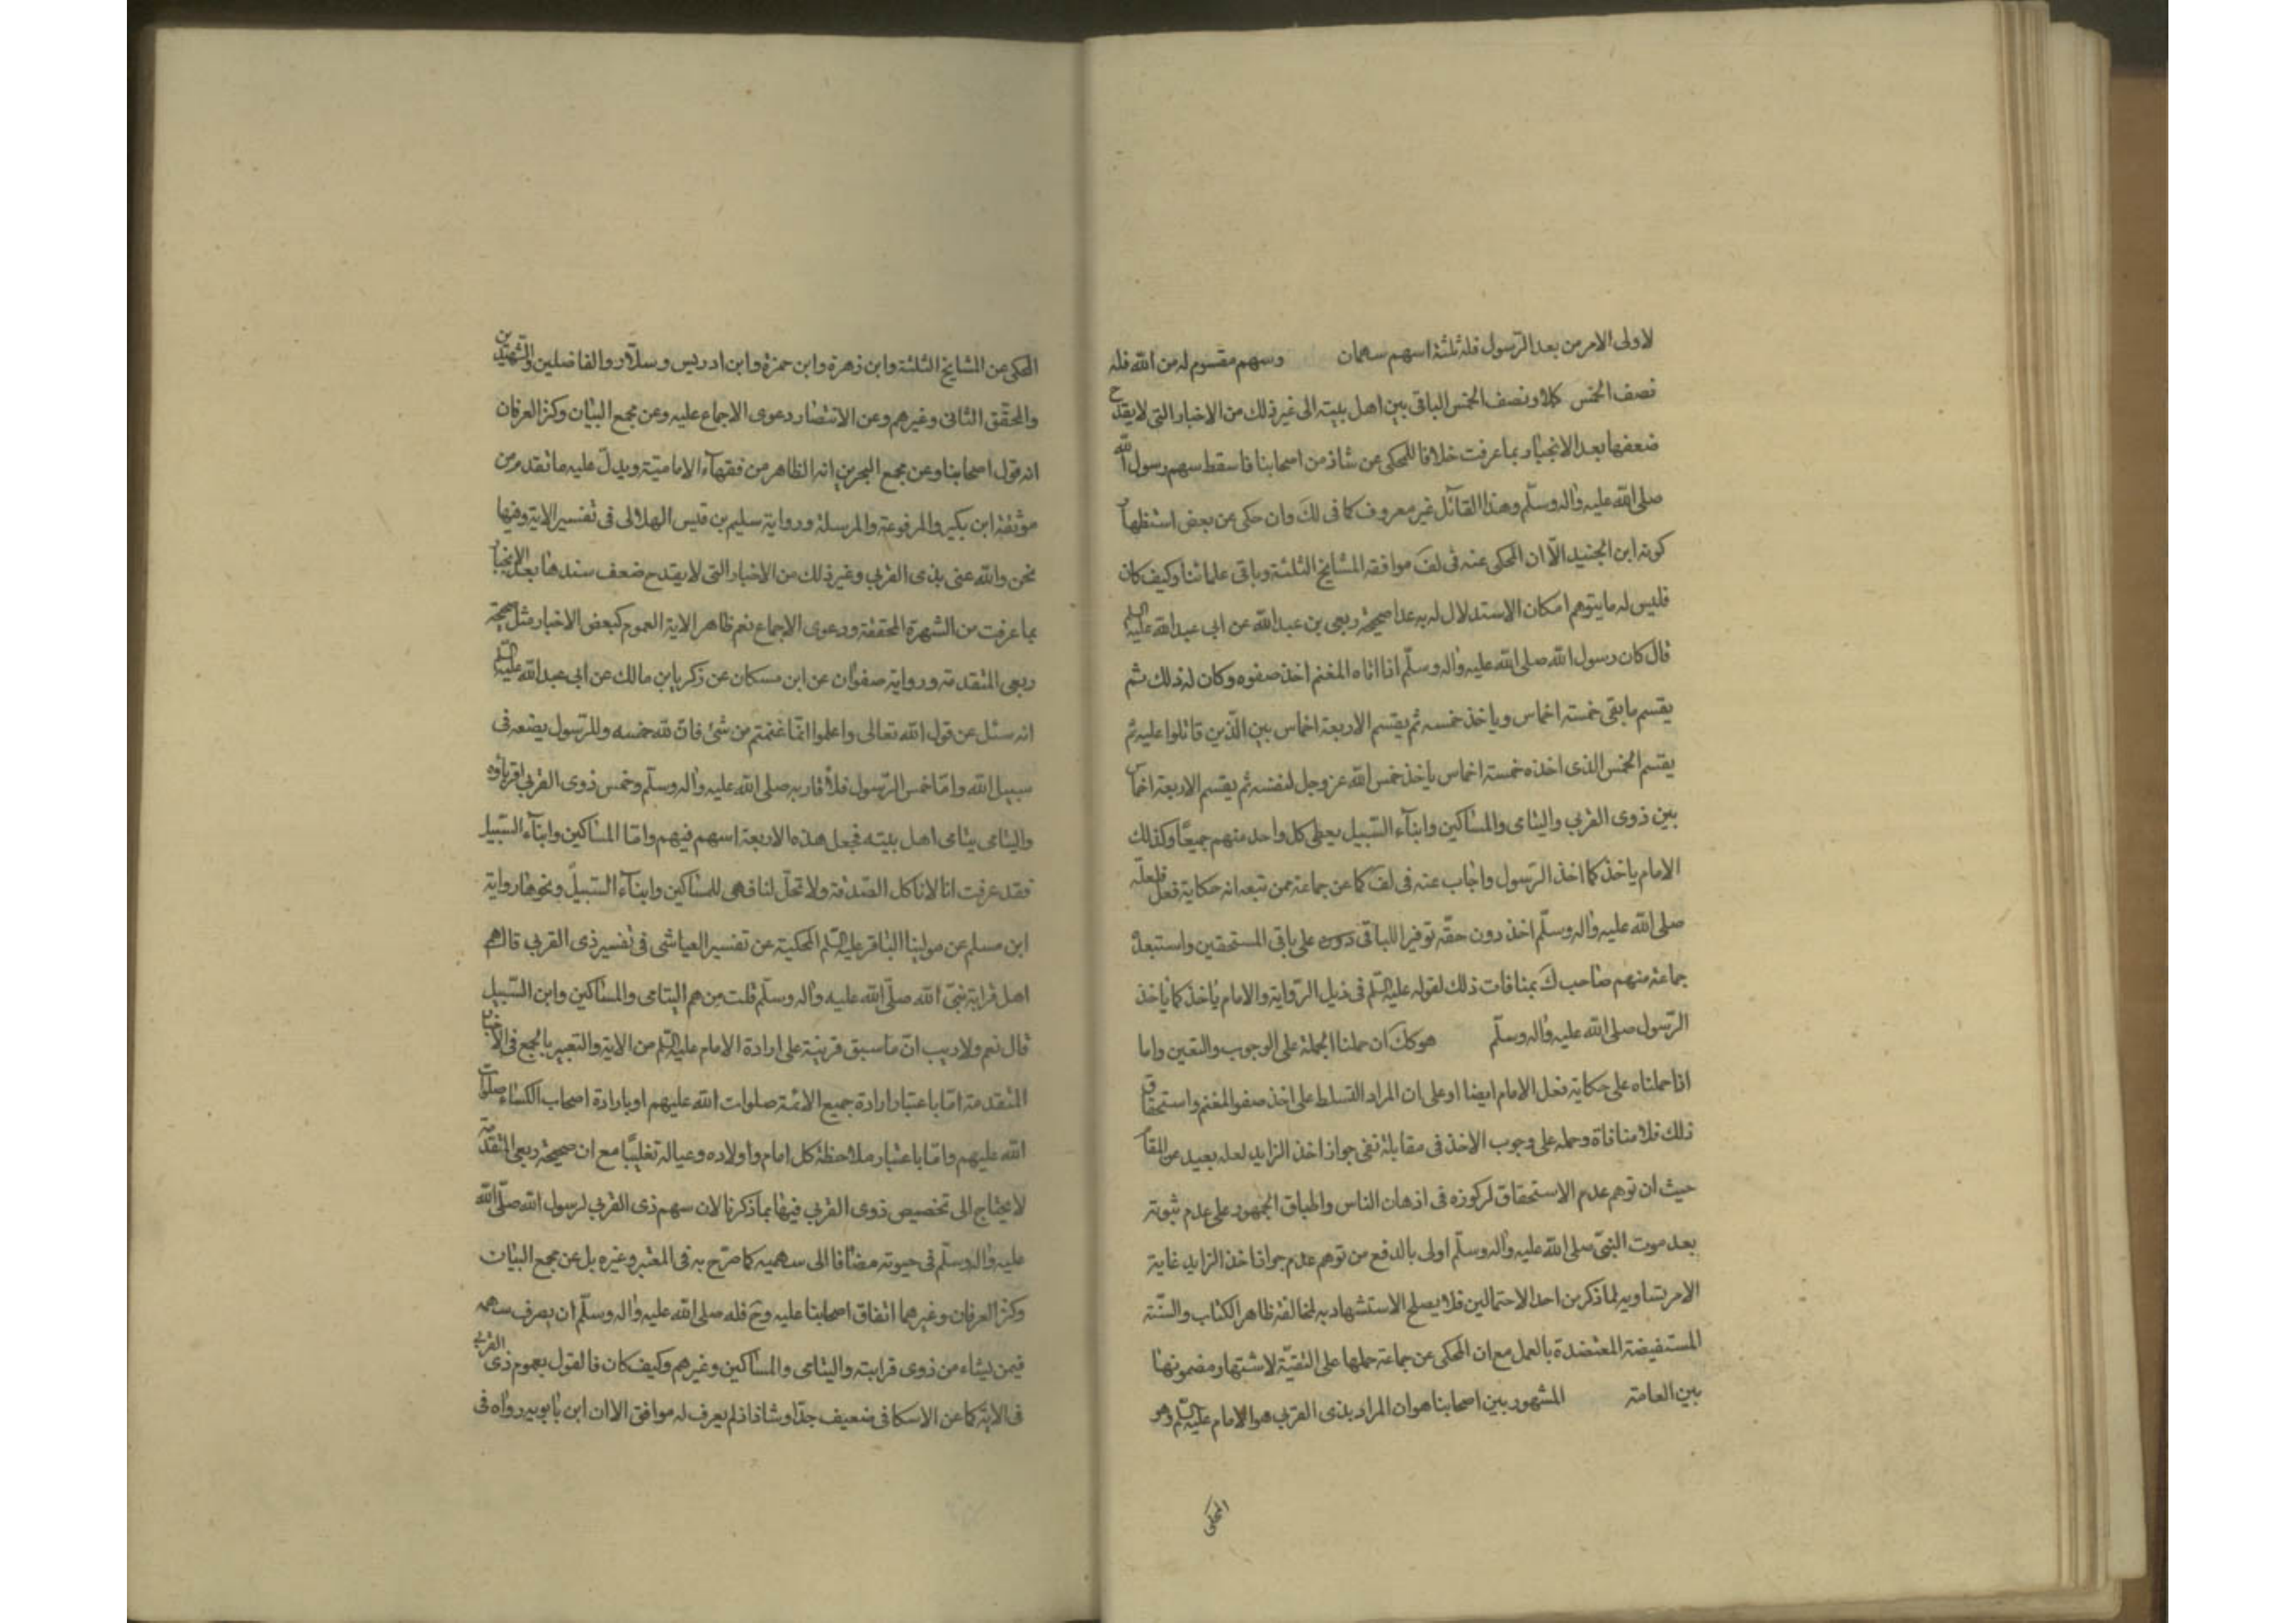 لاولى الامر من بعد الرّسول فله ثلثة اسهم سهمان وسهم مقسوم له من الله فله
نصف الخمس كملا ونصف الخمس الباقى بين اهل بيته الى غير ذلك من الاخبار التى لا يقدح
ضعفها بعد الانجبار بما عرفت خلافا للمحكى عن شاذ من اصحابنا فاسقط سهم رسول الله
صلى الله عليه واله وسلّم وهذا القائل غير معروف كما فى لك وان حكى عن بعض استظهار
كونه ابن الجنيد الّا ان المحكى عنه فى لف موافقه المشايخ الثلثة وباقى علمائنا وكيف كان
فليس له ما يتوهم امكان الاستدلال له به عدا صحيحة ربعى بن عبد الله عن ابى عبد الله عليه السلم
قال كان رسول الله صلى الله عليه واله وسلّم اذا اتاه المغنم اخذ صفوه وكان له ذلك ثم
يقسم ما بقى خمسته اخماس وياخذ خمسه ثم يقسم الاربعة اخماس بين الّذين قاتلوا عليه ثم
يقسم الخمس الذى اخذه خمسته اخماس ياخذ خمس الله عز وجل لنفسه ثم يقسم الاربعة اخماس
بين ذوى القربى واليتامى والمساكين وابنآء السّبيل يعطى كل واحد منهم جميعًا وكذلك
الامام ياخذ كما اخذ الرّسول واجاب عنه فى لف كما عن جماعة ممن تبعه انه حكاية فعل فلعلّه
صلى الله عليه واله وسلّم اخذ دون حقّه توفيرا للباقى على باقى المستحقين واستبعد
جماعة منهم صاحب ك بمنافات ذلك لقوله عليه السّلم فى ذيل الرّواية والامام ياخذ كما ياخذ
الرّسول صلى الله عليه واله وسلّم هو كك ان حملنا الجملة على الوجوب والتعين واما
اذا حملناه على حكاية فعل الامام ايضا او على ان المراد التسلط على اخذ صفو المغنم واستحقاق
ذلك فلا منافاة وحمله على وجوب الاخذ فى مقابلة نفى جواز اخذ الزايد لعله بعيد عن المقام
حيث ان توهم عدم الاستحقاق لركوزه فى اذهان الناس واطباق الجمهور على عدم ثبوته
بعد موت النبىّ صلى الله عليه واله وسلّم اولى بالدفع من توهم عدم جواز اخذ الزايد غاية
الامر تساويه لما ذكر من احد الاحتمالين فلا يصلح الاستشهاد به لمخالفة ظاهر الكتاب والسّنة
المستفيضة المعتضدة بالعمل مع ان المحكى عن جماعة حملها على التقيّة لاشتهار مضمونها
بين العامة المشهور بين اصحابنا هو ان المراد بذى القربى هو الامام عليه السّلم وهو
المحكى
المحكى عن المشايخ الثلثة وابن زهرة وابن حمزة وابن ادريس وسلّار والفاضلين والشهيدين
والمحقّق الثانى وغيرهم وعن الانتصار دعوى الاجماع عليه وعن مجمع البيان وكنز العرفان
انه قول اصحابنا وعن مجمع البحرين انه الظاهر من فقهآء الاماميّة ويدلّ عليه ما تقدم من
موثقة ابن بكير والمرفوعة والمرسلة ورواية سليم بن قيس الهلالى فى تفسير الاية وفيها
نحن والله عنى بذى القربى وغير ذلك من الاخبار التى لا يقدح ضعف سندها بعد الانجبار
بما عرفت من الشهرة المحققة ودعوى الاجماع نعم ظاهر الاية العموم كبعض الاخبار مثل صحيحة
ربعى المتقدمة ورواية صفوان عن ابن مسكان عن زكريا بن مالك عن ابى عبد الله عليه السلم
انه سئل عن قول الله تعالى واعلموا انّما غنمتم من شئ فانّ لله خمسه وللرّسول يضعه فى
سبيل الله وامّا خمس الرّسول فلاقاربه صلى الله عليه واله وسلّم وخمس ذوى القربى اقرباؤه
واليتامى يتامى اهل بيته فجعل هذه الاربعة اسهم فيهم وامّا المساكين وابنآء السّبيل
فقد عرفت انا لا ناكل الصّدقة ولا تحلّ لنا فهى للمساكين وابنآء السّبيل ونحوها رواية
ابن مسلم عن مولينا الباقر عليه السّلم المحكية عن تفسير العياشى فى تفسير ذى القربى قال هم
اهل قرابة نبىّ الله صلّى الله عليه واله وسلّم قلت منهم اليتامى والمساكين وابن السّبيل
قال نعم ولا ريب انّ ما سبق قرينة على ارادة الامام عليه السّلم من الاية والتعبير بالجمع فى الاخبار
المتقدمة امّا باعتبار ارادة جميع الائمة صلوات الله عليهم او بارادة اصحاب الكساء صلوات
الله عليهم وامّا باعتبار ملاحظة كل امام واولاده وعياله تغليبًا مع ان صحيحة ربعى المتقدّمة
لا يحتاج الى تخصيص ذوى القربى فيها بما ذكرنا لان سهم ذى القربى لرسول الله صلّى الله
عليه واله وسلّم فى حيوته مضافا الى سهميه كما صرّح به فى المعتبر وغيره بل عن مجمع البيان
وكنز العرفان وغيرهما اتفاق اصحابنا عليه وح فله صلى الله عليه واله وسلّم ان يصرف سهمه
فيمن يشاء من ذوى قرابته واليتامى والمساكين وغيرهم وكيف كان فالقول بعموم ذى القربى
فى الاية كما عن الاسكافى ضعيف جدّا وشاذ اذ لم يعرف له موافق الا ان ابن بابويه رواه فى